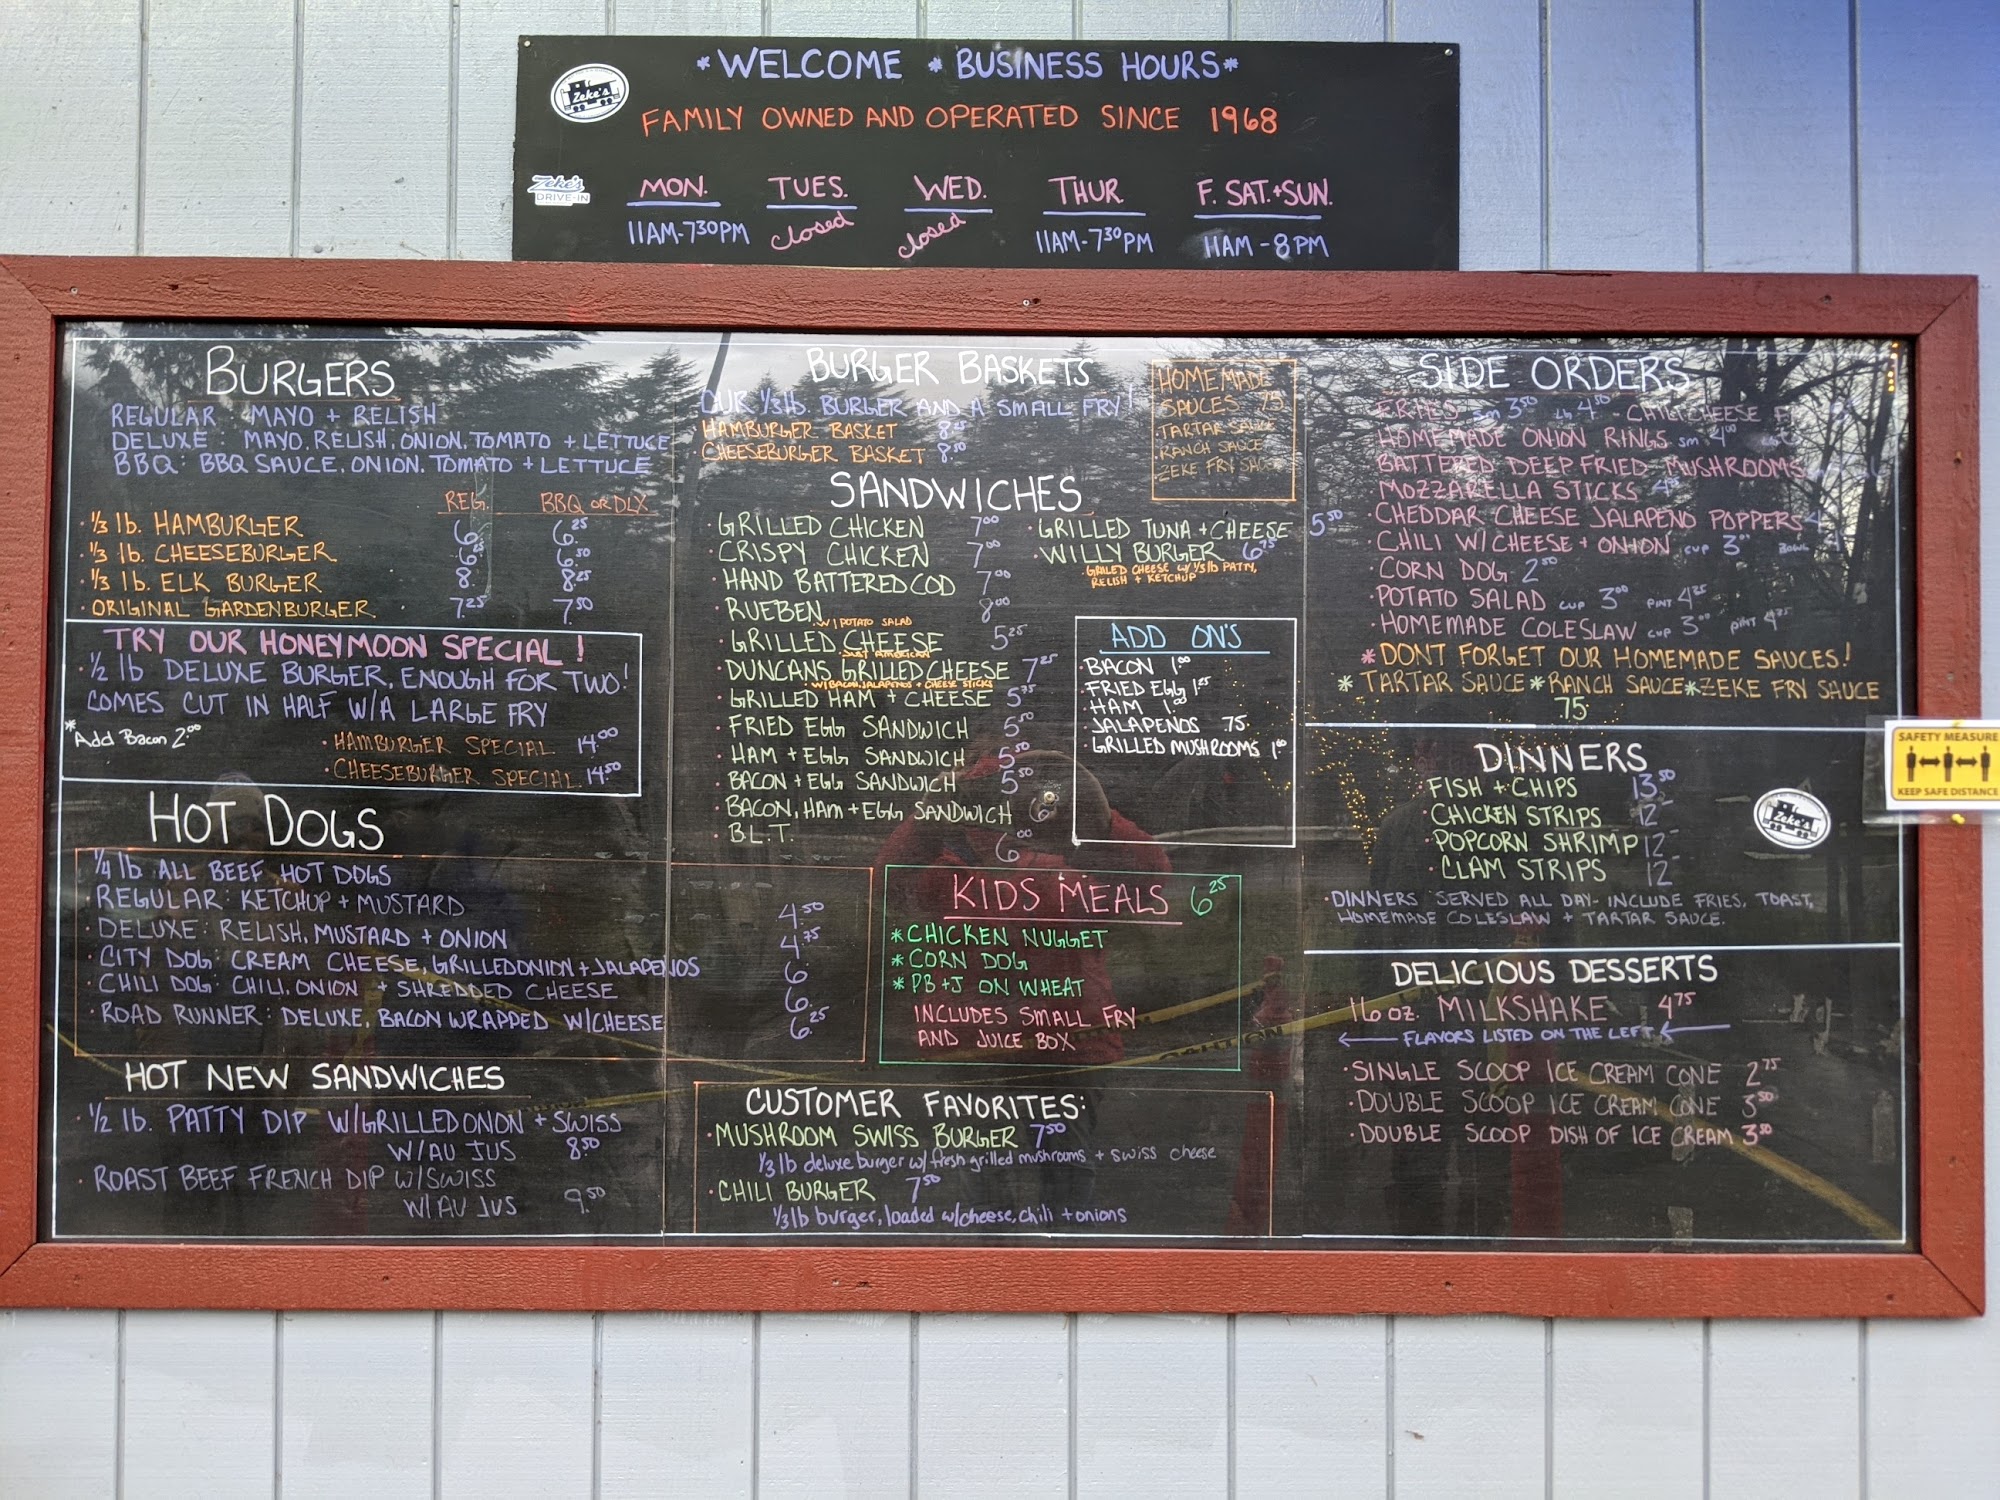 *WELCOME * BUSINESS HOURS*
Zeke's
FAMILY OWNED AND OPERATED SINCE 1968
Zeke's
DRIVE-IN
MON. TUES. WED. THUR F. SAT.+SUN.
11AM-7³⁰PM closed closed 11AM-7³⁰PM 11AM-8PM
BURGERS
REGULAR MAYO + RELISH
DELUXE: MAYO, RELISH, ONION, TOMATO + LETTUCE
BBQ: BBQ SAUCE, ONION, TOMATO + LETTUCE
REG. BBQ OR DLX
· 1/3 lb. HAMBURGER 6. 6.²⁵
· 1/3 lb. CHEESEBURGER 6.²⁵ 6.⁵⁰
· 1/3 lb. ELK BURGER 8. 8.²⁵
· ORIGINAL GARDENBURGER 7.²⁵ 7.⁵⁰
TRY OUR HONEYMOON SPECIAL!
· 1/2 lb DELUXE BURGER, ENOUGH FOR TWO!
COMES CUT IN HALF W/A LARGE FRY
*Add Bacon 2⁰⁰
· HAMBURGER SPECIAL 14.⁰⁰
· CHEESEBURGER SPECIAL 14⁵⁰
HOT DOGS
1/4 lb ALL BEEF HOT DOGS
· REGULAR: KETCHUP + MUSTARD 4.⁵⁰
· DELUXE: RELISH, MUSTARD + ONION 4.⁷⁵
· CITY DOG: CREAM CHEESE, GRILLED ONION + JALAPENOS 6
· CHILI DOG: CHILI, ONION + SHREDDED CHEESE 6.
· ROAD RUNNER: DELUXE, BACON WRAPPED W/CHEESE 6.²⁵
HOT NEW SANDWICHES
· 1/2 lb. PATTY DIP W/GRILLED ONON + SWISS
W/AU JUS 8.⁵⁰
· ROAST BEEF FRENCH DIP W/SWISS
W/AU JUS 9.⁵⁰
BURGER BASKETS
OUR 1/3 lb. BURGER AND A SMALL FRY!
HAMBURGER BASKET
CHEESEBURGER BASKET 8.⁵⁰
HOMEMADE
SAUCES .75
· TARTAR SAUCE
· RANCH SAUCE
· ZEKE FRY SAUCE
SANDWICHES
· GRILLED CHICKEN 7⁰⁰
· CRISPY CHICKEN 7⁰⁰
· HAND BATTERED COD 7⁰⁰
· RUEBEN 8⁰⁰
W/POTATO SALAD
· GRILLED CHEESE 5²⁵
JUST AMERICAN
· DUNCANS GRILLED CHEESE 7²⁵
W/BACON, JALAPENOS + CHEESE STICKS
· GRILLED HAM + CHEESE 5⁷⁵
· FRIED EGG SANDWICH 5⁵⁰
· HAM + EGG SANDWICH 5⁵⁰
· BACON + EGG SANDWICH 5⁵⁰
· BACON, HAM + EGG SANDWICH 6
· B.L.T. 6⁰⁰
· GRILLED TUNA + CHEESE 5⁵⁰
· WILLY BURGER 6⁷⁵
GRILLED CHEESE W/ 1/3 lb PATTY,
RELISH + KETCHUP
ADD ON'S
· BACON 1⁰⁰
· FRIED EGG 1²⁵
· HAM 1⁰⁰
· JALAPENOS .75
· GRILLED MUSHROOMS 1⁰⁰
KIDS MEALS 6²⁵
*CHICKEN NUGGET
*CORN DOG
*PB+J ON WHEAT
INCLUDES SMALL FRY
AND JUICE BOX
CUSTOMER FAVORITES:
· MUSHROOM SWISS BURGER 7⁵⁰
1/3 lb deluxe burger w/ fresh grilled mushrooms + swiss cheese
· CHILI BURGER 7⁵⁰
1/3 lb burger, loaded w/cheese, chili + onions
SIDE ORDERS
· FRIES sm 3⁵⁰ LG 4⁵⁰ - CHILI CHEESE F
· HOMEMADE ONION RINGS sm 4⁰⁰
· BATTERED DEEP FRIED MUSHROOMS
· MOZZARELLA STICKS
· CHEDDAR CHEESE JALAPENO POPPERS
· CHILI W/CHEESE + ONION CUP 3 BOWL
· CORN DOG 2⁵⁰
· POTATO SALAD CUP 3⁰⁰ PINT 4²⁵
· HOMEMADE COLESLAW CUP 3⁰⁰ PINT 4²⁵
*DONT FORGET OUR HOMEMADE SAUCES!
*TARTAR SAUCE *RANCH SAUCE *ZEKE FRY SAUCE
.75
DINNERS
· FISH + CHIPS 13⁵⁰
· CHICKEN STRIPS 12
· POPCORN SHRIMP 12
· CLAM STRIPS 12
Zeke's
· DINNERS SERVED ALL DAY- INCLUDE FRIES, TOAST,
HOMEMADE COLESLAW + TARTAR SAUCE.
DELICIOUS DESSERTS
16 oz. MILKSHAKE 4⁷⁵
FLAVORS LISTED ON THE LEFT
· SINGLE SCOOP ICE CREAM CONE 2⁷⁵
· DOUBLE SCOOP ICE CREAM CONE 3⁵⁰
· DOUBLE SCOOP DISH OF ICE CREAM 3⁵⁰
SAFETY MEASURE
KEEP SAFE DISTANCE